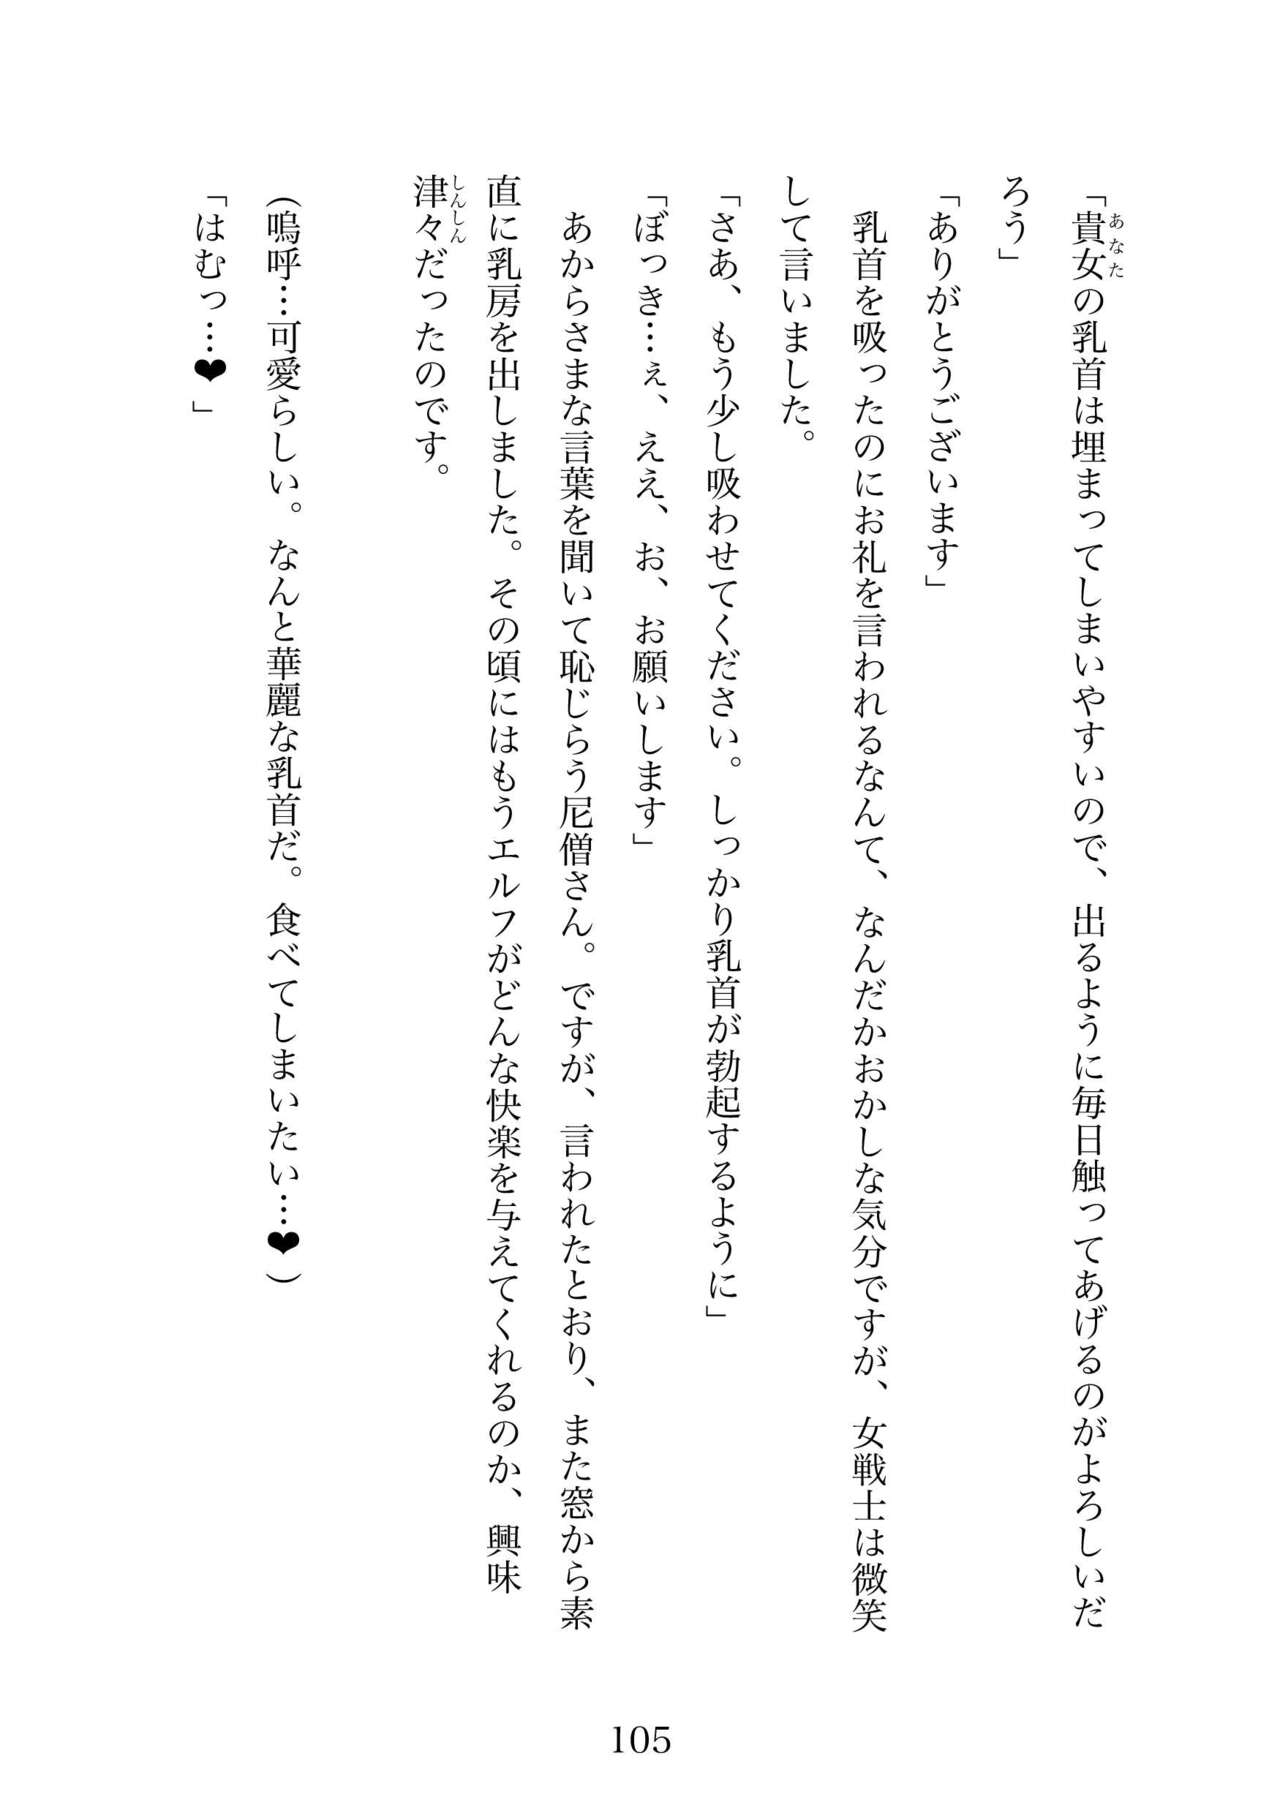 「貴女の乳首は埋まってしまいやすいので、出るように毎日触ってあげるのがよろしいだ
ろう」
「ありがとうございます」
乳首を吸ったのにお礼を言われるなんて、なんだかおかしな気分ですが、女戦士は微笑
して言いました。
「さあ、もう少し吸わせてください。しっかり乳首が勃起するように」
「ぼっき…ぇ、ええ、お、お願いします」
あからさまな言葉を聞いて恥じらう尼僧さん。ですが、言われたとおり、また窓から素
直に乳房を出しました。その頃にはもうエルフがどんな快楽を与えてくれるのか、興味
津々だったのです。
（嗚呼…可愛らしい。なんと華麗な乳首だ。食べてしまいたい…❤）
「はむっ…❤」
あなた
しんしん
105